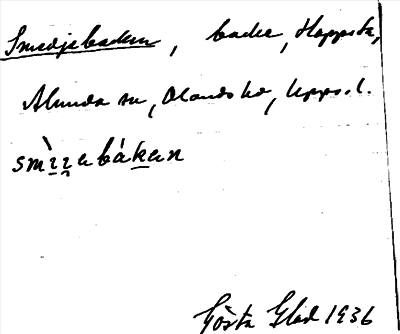 Smedjebacken, backe, Hoppsta,
Alunda sn, Olands hd, Upps. l.
smìzzabákan
Gösta Glad 1936